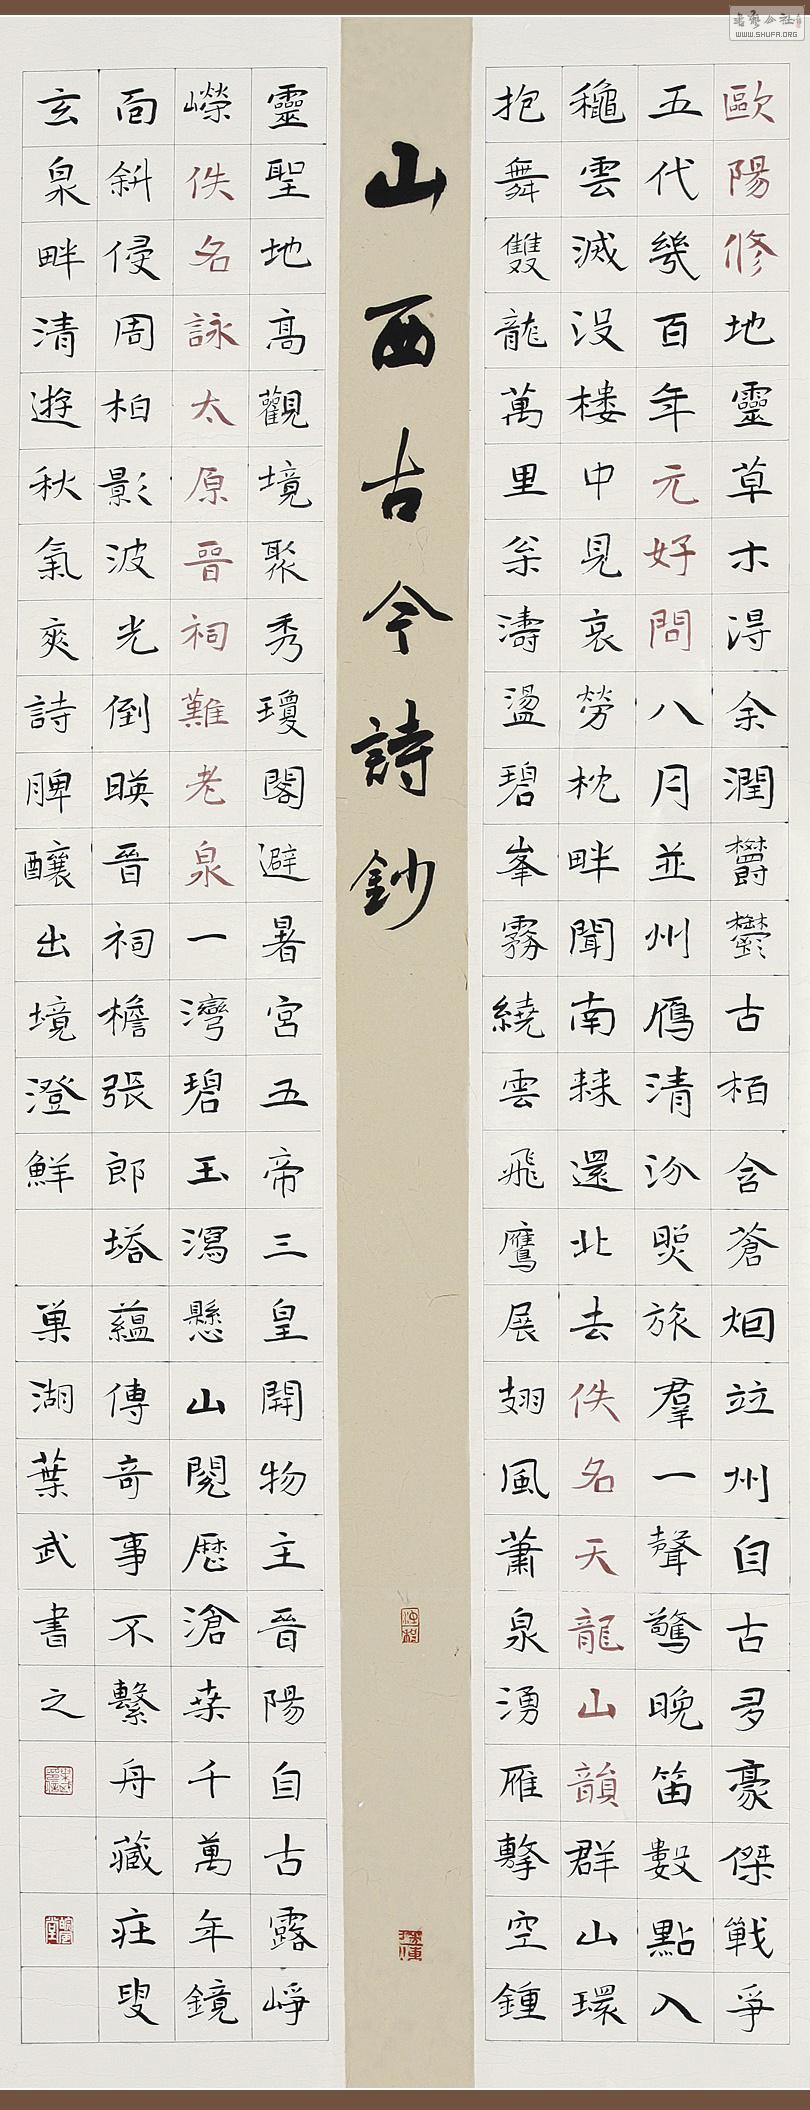 歐陽修地靈草木淂余潤鬱鬱古栢含蒼烟竝州自古多豪傑戰爭
五代幾百年元好問八月並州鴈清汾照旅羣一聲驚晚笛數點入
穐雲滅沒樓中見哀勞枕畔聞南棘還北去佚名天龍山韻群山環
抱舞雙龍萬里枀濤盪碧峯霧繞雲飛鷹展翅風蕭泉湧雁擊空鍾
山西古今詩鈔
靈聖地高觀境聚秀瓊閣避暑宮五帝三皇開物主晉陽自古露崢
嶸佚名詠太原晉祠難老泉一灣碧玉瀉懸山閱歷滄桒千萬年鏡
面斜侵周柏影波光倒暎晉祠檐張郎塔蘊傳奇事不繫舟藏莊叟
玄泉畔清遊秋氣爽詩脾釀出境澄鮮 巢湖葉武書之
WWW.SHUFA.ORG